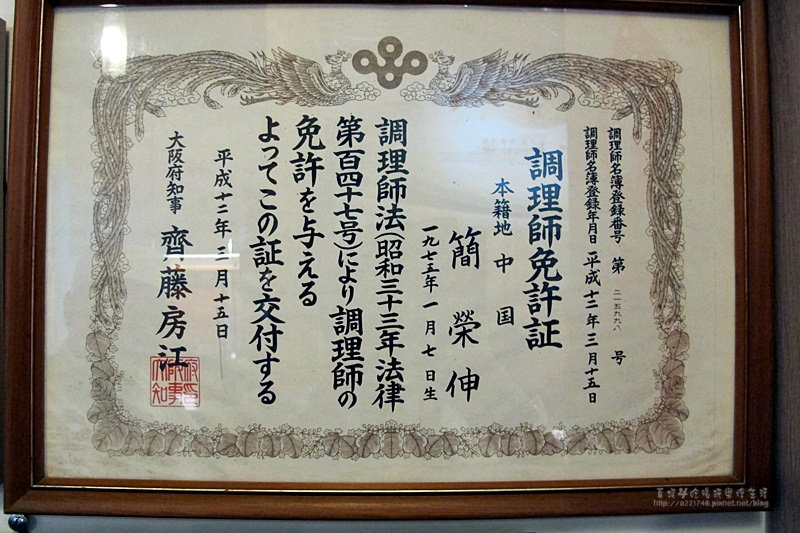 調理師名簿登録番号 第 二一五九九八 号
調理師名簿登録年月日 平成十二年三月十五日
調理師免許証
本籍地 中国
簡榮伸
一九七五年一月七日生
調理師法(昭和三十三年法律
第百四十七号)により調理師の
免許を与える
よってこの証を交付する
平成十二年三月十五日
大阪府知事 齊藤房江
大阪府知事
http://a221748.pixnet.net/blog